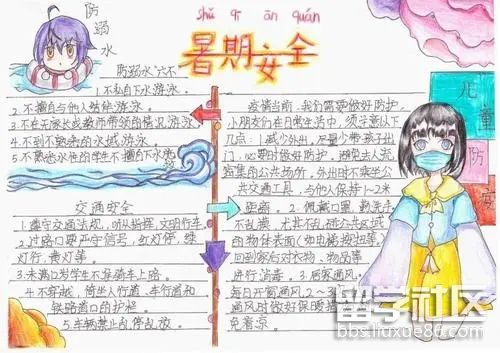 shǔ qī ān quán
暑期安全
防溺水
防溺水"六不"
1.不私自下水游泳。
2.不擅自与他人结伴游泳。
3.不在无家长或教师带领的情况游泳
4.不到不熟悉的水域游泳
5.不熟悉水性的学生不擅自下水施
交通安全
1.遵守交通法规，听从指挥，文明行车。
2.过路口要严守信号，红灯停，绿
灯行，黄灯等。
3.未满12岁学生不准骑车上路。
4.不穿越、倚坐人行道、车行道和
铁路道口的护栏。
5.车辆禁止乱停乱放。
疫情当前，我们需要做好防护，
小朋友们在日常生活中，须注意以下
几点：1.减少外出，尽量少带孩子出
门，必要时做好防护，避免去人流
密集的公共场所，外出时不乘坐公
共交通工具，与他人保持1~2米
距离。2.佩戴口罩，勤洗手
不乱摸，尤其不乱碰公共区域
的物体表面（如电梯按钮等）
回到家后对衣物、物品等
进行消毒。3.居家通风，
每日开窗通风2~3
风时做好保暖措
免着凉。
儿童防安
留学社区
bbs.liuxue86.com